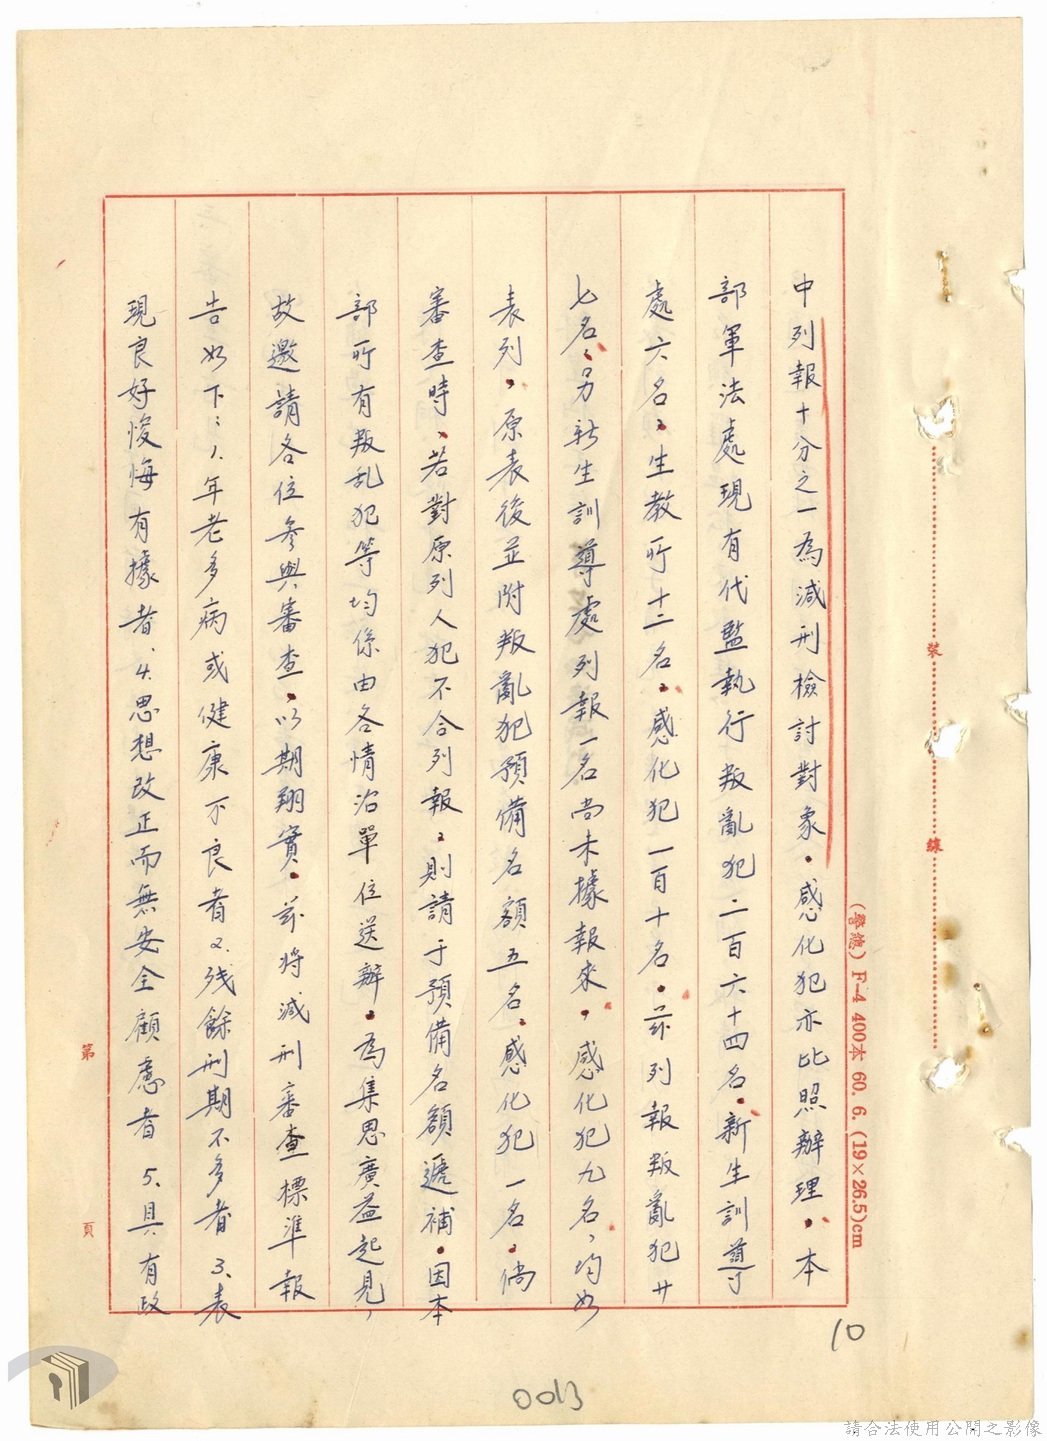 中列報十分之一為減刑檢討對象。感化犯亦比照辦理。本
部軍法處現有代監執行叛亂犯二百六十四名。新生訓導
處六名、生教所十二名。感化犯一百十名。茲列報叛亂犯廿
七名、另新生訓導處列報一名尚未據報來，感化犯九名，均如
表列，原表後並附叛亂犯預備名額五名、感化犯一名。倘
審查時、若對原列人犯不合列報、則請于預備名額遞補。因本
部所有叛乱犯等均係由各情治單位送辦。為集思廣益起見，
故邀請各位參與審查。以期翔實。茲將減刑審查標準報
告如下：1、年老多病或健康不良者2、残餘刑期不多者3、表
現良好悛悔有據者、4、思想改正而無安全顧慮者5、具有政
裝
線
(警總) F-4 400本 60. 6. (19×26.5)cm
第
頁
10
0013
請合法使用公開之影像